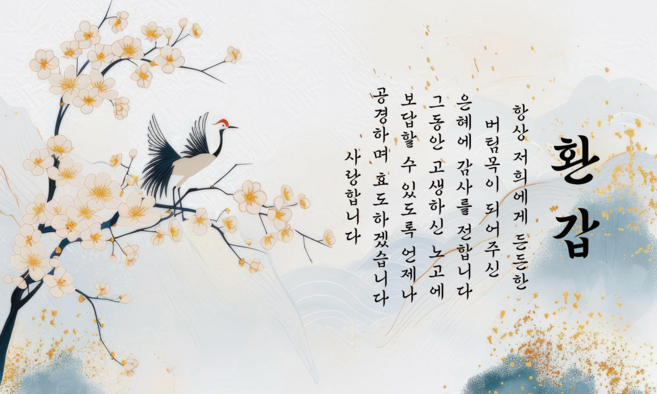 환갑
항상 저희에게 든든한
버팀목이 되어주신
은혜에 감사를 전합니다
그동안 고생하신 노고에
보답할 수 있도록 언제나
공경하며 효도하겠습니다
사랑합니다